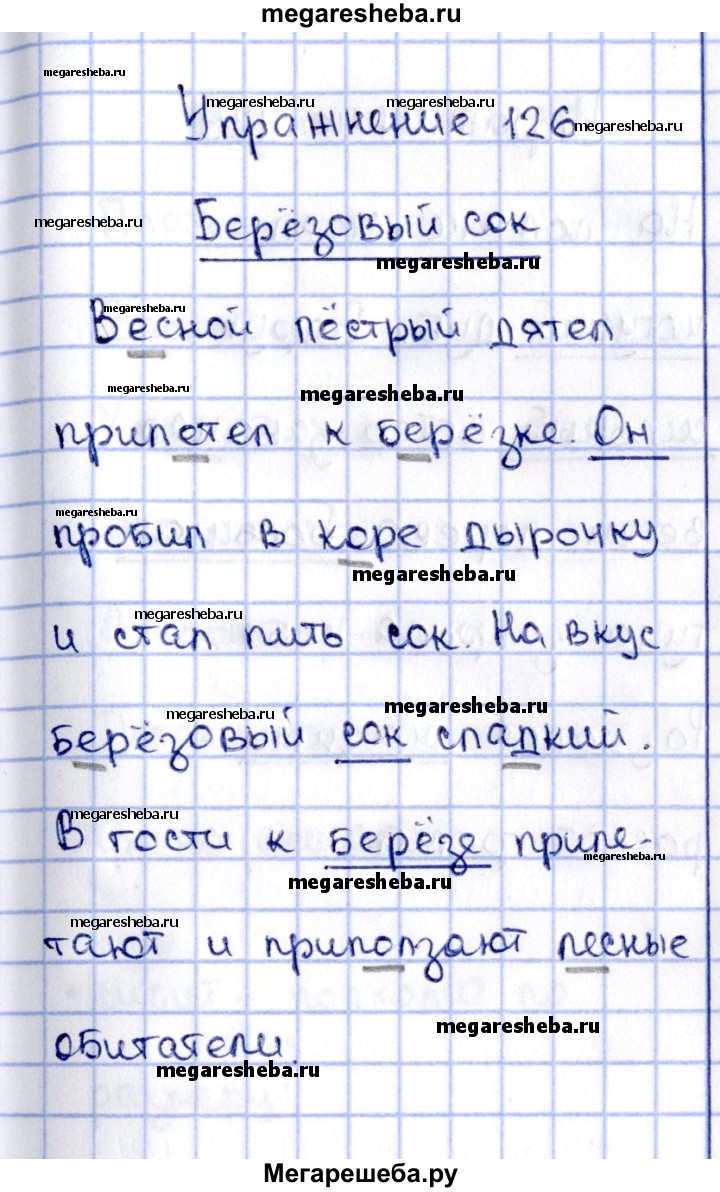 megaresheba.ru
megaresheba.ru
Упражнение 126
megaresheba.ru
megaresheba.ru
megaresheba.ru
megaresheba.ru
Берёзовый сок
megaresheba.ru
megaresheba.ru
Весной пёстрый дятел
megaresheba.ru
megaresheba.ru
прилетел к берёзке. Он
megaresheba.ru
пробил в коре дырочку
megaresheba.ru
megaresheba.ru
и стал пить сок. На вкус
megaresheba.ru
megaresheba.ru
берёзовый сок сладкий.
megaresheba.ru
В гости к берёзе приле-
megaresheba.ru
megaresheba.ru
megaresheba.ru
тают и приползают лесные
megaresheba.ru
обитатели.
megaresheba.ru
Мегарешеба.ру